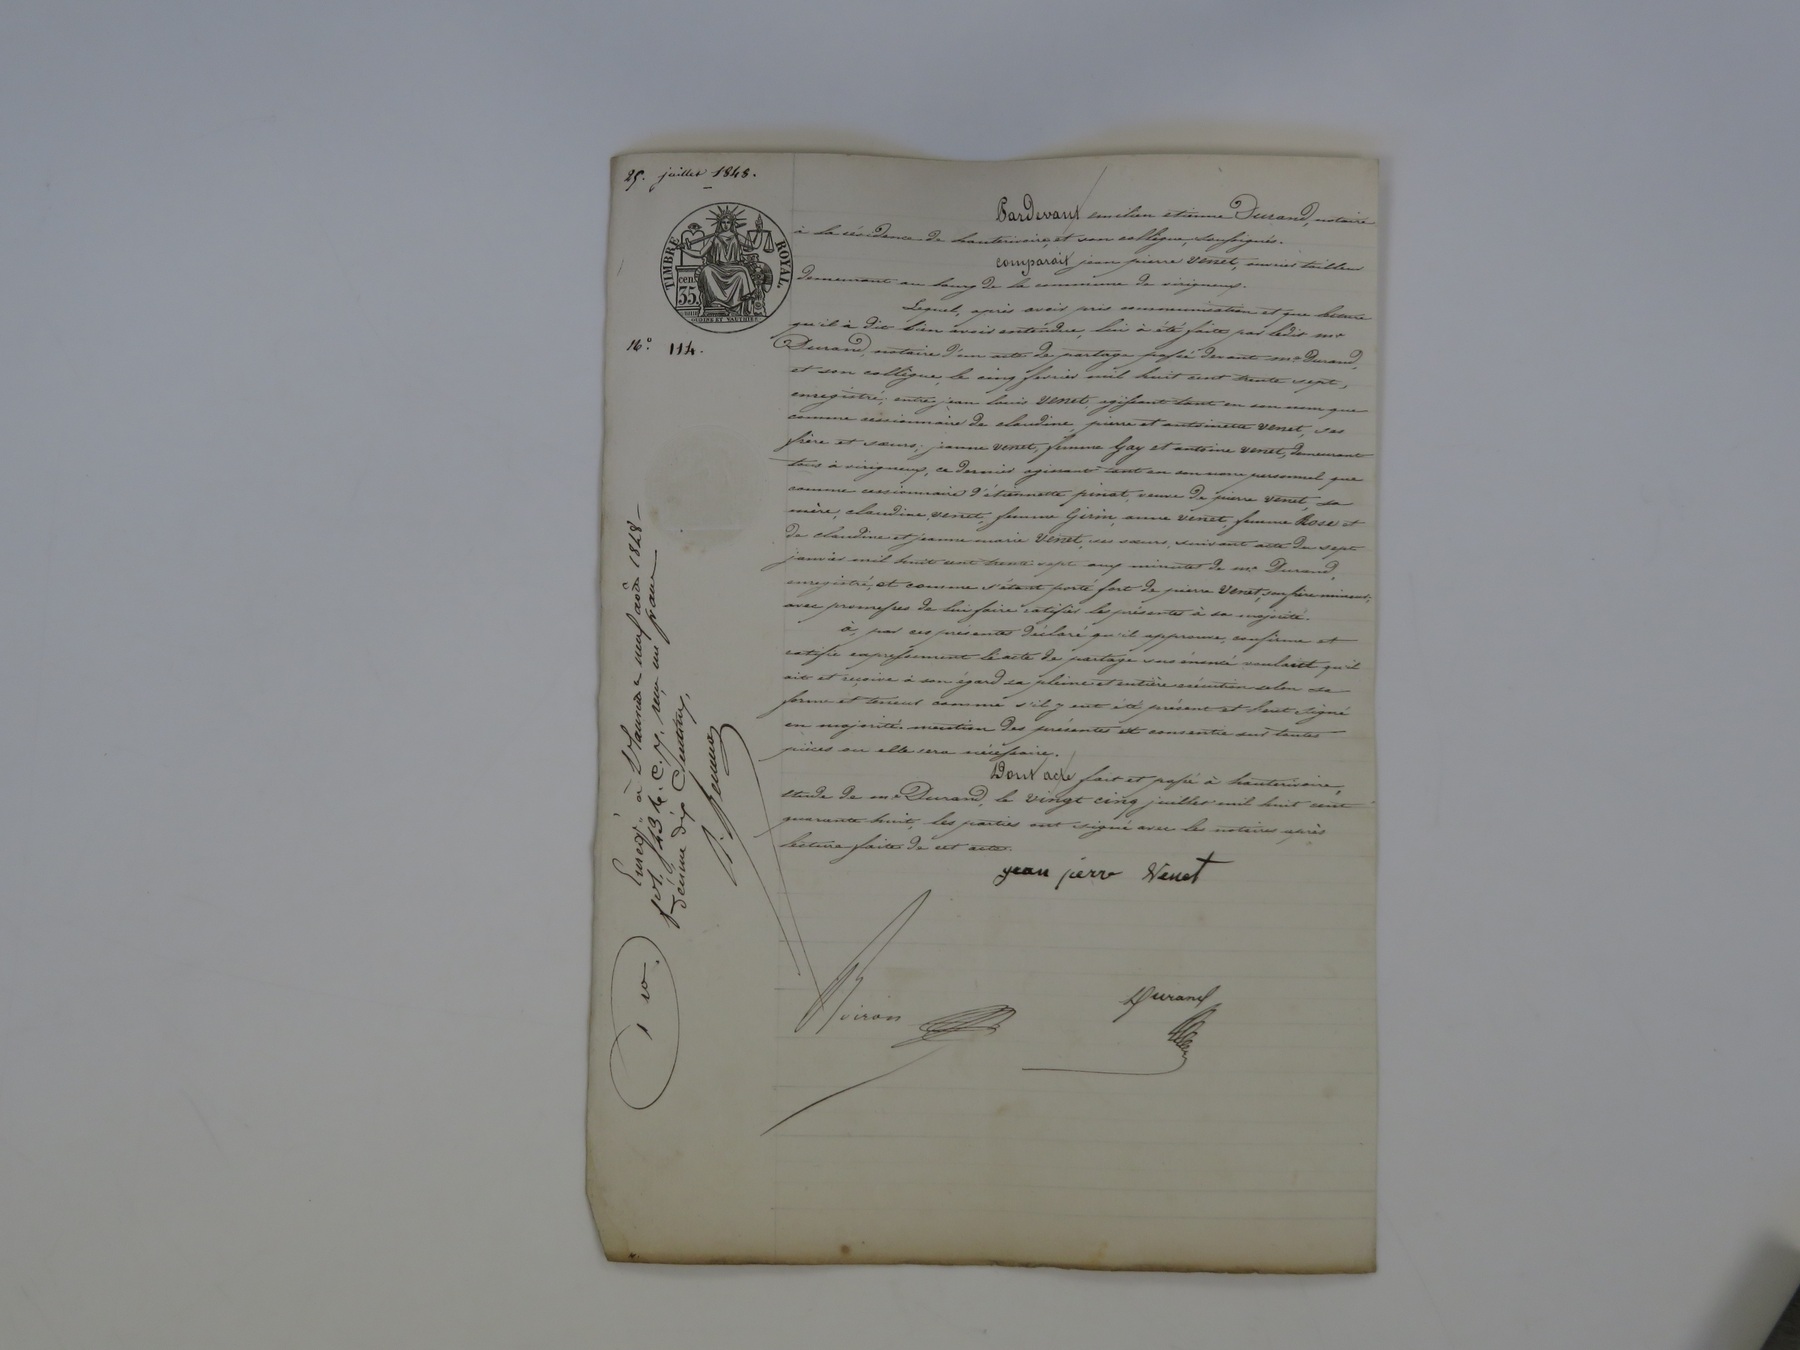 25. juillet 1848.
TIMBRE ROYAL.
cen.
35.
N.º 114.
Pardevant emilien etienne Durand, notaire
à la résidence de hauterivoire, et son collègue, soussignés.
comparait jean pierre Venet, ouvrier tailleur
demeurant au bourg de la commune de virigneux.
Lequel, après avoir pris communication et que lecture
qu'il à dit bien avoir entendue, lui à été faite par ledit mᵉ
Durand, notaire d'un acte de partage passé devant mᵉ Durand,
et son collègue, le cinq fevrier mil huit cent trente sept,
enregistré; entre jean louis Venet, agissant tant en son nom que
comme cessionnaire de claudine, pierre et antoinette Venet, ses
frère et sœurs; jeanne Venet, femme Gay et antoine Venet, demeurant
tous à virigneux, ce dernier agissant tant en son nom personnel que
comme cessionnaire d'étiennette pinat, veuve de pierre Venet, sa
mère, claudine Venet, femme Girin, anne Venet, femme Rose et
de claudine et jeanne marie Venet, ses sœurs, suivant acte du sept
janvier mil huit cent trente sept aux minutes de mᵉ Durand,
enregistré, et comme s'étant porté fort de pierre Venet, son frère mineur,
avec promesses de lui faire ratifier les présentes à sa majorité.
à, par ces présentes déclaré qu'il approuve, confirme et
ratifie expressément l'acte de partage sus énoncé voulant qu'il
ait et reçoive à son égard sa pleine et entière exécution selon sa
forme et teneur comme s'il y eut été présent et l'eut signé
en majorité. mention des présentes est consentie sur toutes
pièces ou elle sera nécessaire.
Dont acte fait et passé à hauterivoire,
étude de mᵉ Durand, le vingt cinq juillet mil huit cent
quarante huit, les parties ont signé avec les notaires après
lecture faite de cet acte.
jean pierre Venet
Durand
Enregᵗ à le neuf août 1848
fol. 43 reçu un franc
décime dix centimes,
1 10.